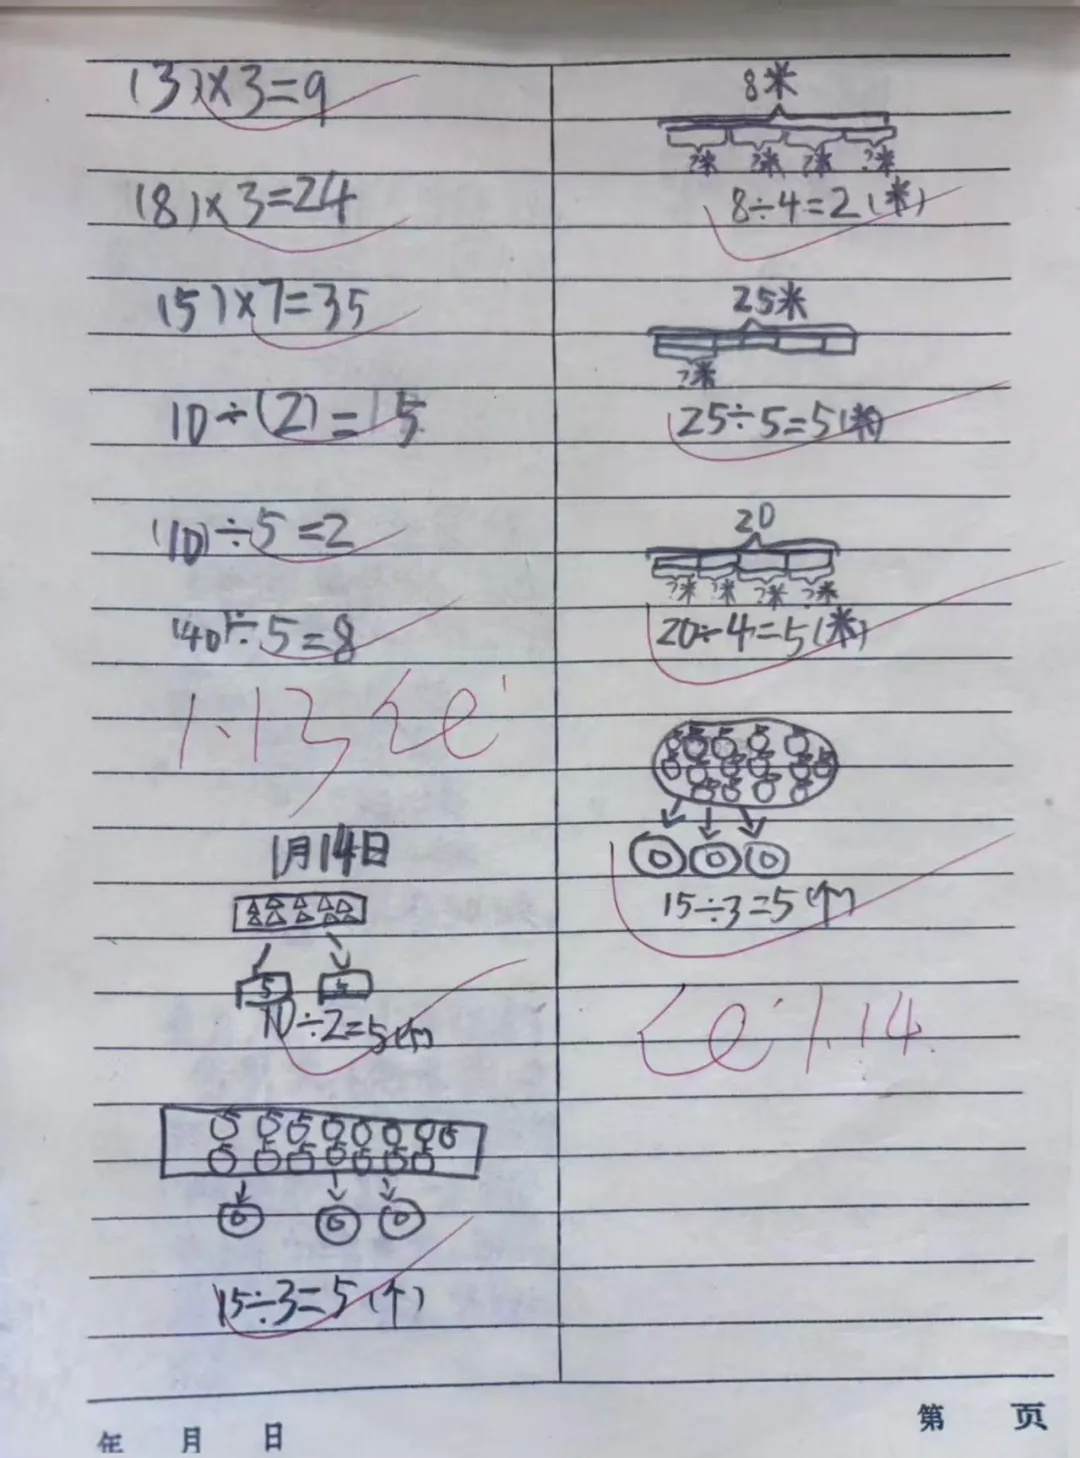 (3)×3=9
(8)×3=24
(5)×7=35
10÷(2)=5
(10)÷5=2
(40)÷5=8
1.13
1月14日
5 5
10÷2=5(个)
15÷3=5(个)
8米
?米 ?米 ?米 ?米
8÷4=2(米)
25米
?米
25÷5=5(米)
20
?米 ?米 ?米 ?米
20÷4=5(米)
15÷3=5(个)
1.14
年 月 日
第 页